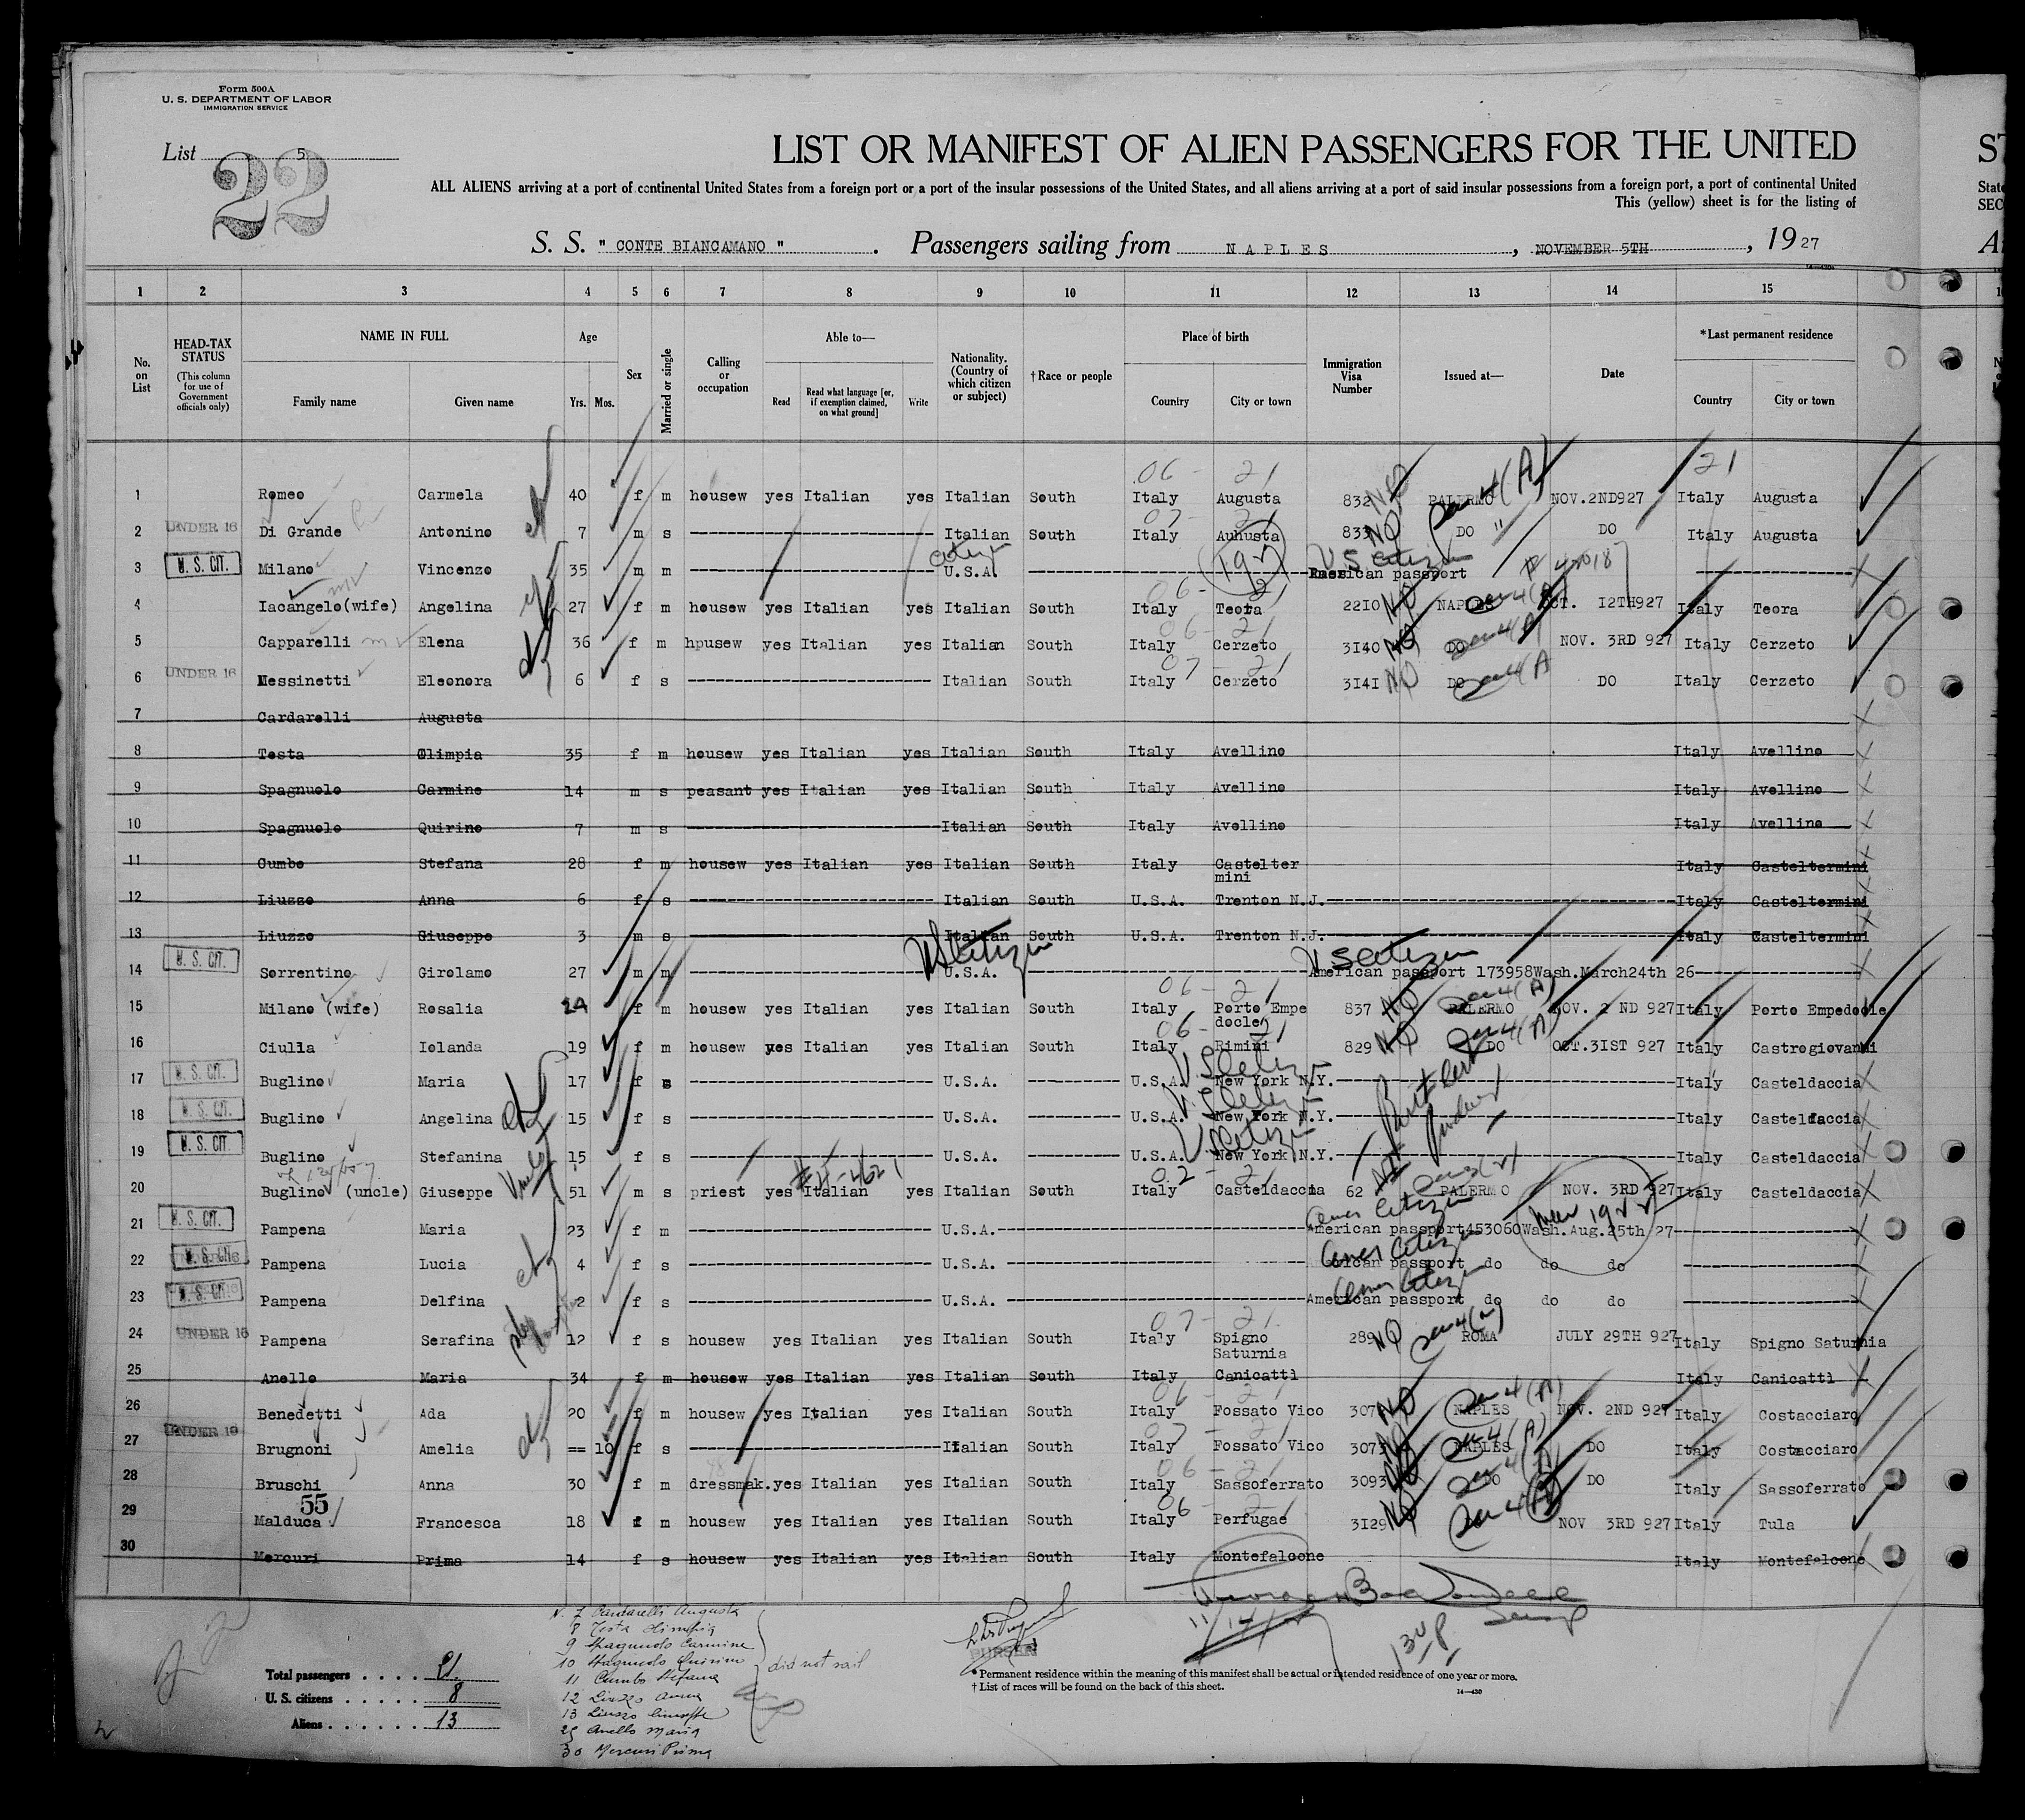 Form 500A
U. S. DEPARTMENT OF LABOR
IMMIGRATION SERVICE
List 5
22
LIST OR MANIFEST OF ALIEN PASSENGERS FOR THE UNITED
ST
ALL ALIENS arriving at a port of continental United States from a foreign port or a port of the insular possessions of the United States, and all aliens arriving at a port of said insular possessions from a foreign port, a port of continental United
State
This (yellow) sheet is for the listing of
SEC
S. S. " CONTE BIANCAMANO ". Passengers sailing from NAPLES, NOVEMBER 5TH, 1927
1 2 3 4 5 6 7 8 9 10 11 12 13 14 15
No. on List
HEAD-TAX STATUS (This column for use of Government officials only)
NAME IN FULL Family name Given name
Age Yrs. Mos.
Sex
Married or single
Calling or occupation
Able to— Read Read what language [or, if exemption claimed, on what ground] Write
Nationality. (Country of which citizen or subject)
† Race or people
Place of birth Country City or town
Immigration Visa Number
Issued at—
Date
*Last permanent residence Country City or town
06 - 21 21
1 Romeo Carmela 40 f m housew yes Italian yes Italian South Italy Augusta 832 NQ PALERMO Sec 4(A) NOV.2ND927 Italy Augusta
07 - 21
2 UNDER 16 Di Grande Antonino 7 m s Italian South Italy Auhusta 833 NQ DO " DO Italy Augusta
3 U. S. CIT. Milano Vincenzo 35 m m citizen U.S.A. U S Citizen American passport
4 Iacangelo(wife) Angelina 27 f m housew yes Italian yes Italian South Italy Teora 2210 NQ NAPLES Sec 4(A) OCT. 12TH927 Italy Teora
06 - 21
5 Capparelli Elena 36 f m hpusew yes Italian yes Italian South Italy Cerzeto 3140 NQ DO Sec 4(A) NOV. 3RD 927 Italy Cerzeto
07 - 21
6 UNDER 16 Messinetti Eleonora 6 f s Italian South Italy Cerzeto 3141 NQ DO Sec 4(A DO Italy Cerzeto
7 Cardarelli Augusta
8 Testa Olimpia 35 f m housew yes Italian yes Italian South Italy Avellino Italy Avellino
9 Spagnuolo Carmine 14 m s peasant yes Italian yes Italian South Italy Avellino Italy Avellino
10 Spagnuolo Quirino 7 m s Italian South Italy Avellino Italy Avellino
11 Cumbo Stefana 28 f m housew yes Italian yes Italian South Italy Casteltermini Italy Casteltermini
12 Liuzzo Anna 6 f s Italian South U.S.A. Trenton N.J. Italy Casteltermini
13 Liuzzo Giuseppe 3 m s Italian South U.S.A. Trenton N.J. Italy Casteltermini
14 U. S. CIT. Sorrentino Girolamo 27 m m US Citizen U.S.A. U S Citizen American passport 173958Wash.March24th 26
06 - 21
15 Milano (wife) Rosalia 24 f m housew yes Italian yes Italian South Italy Porto Empedocle 837 NQ PALERMO Sec 4(A) NOV. 2 ND 927 Italy Porto Empedocle
16 Ciulla Iolanda 19 f m housew yes Italian yes Italian South Italy Rimini 829 NQ DO Sec 4(A) OCT.31ST 927 Italy Castrogiovanni
17 U. S. CIT. Buglino Maria 17 f s U.S.A. U.S.A. New York N.Y. Italy Casteldaccia
18 U. S. CIT. Buglino Angelina 15 f s U.S.A. U.S.A. New York N.Y. Italy Casteldaccia
19 U. S. CIT. Buglino Stefanina 15 f s U.S.A. U.S.A. New York N.Y. Italy Casteldaccia
02 - 21
20 Buglino (uncle) Giuseppe 51 m s priest yes Italian yes Italian South Italy Casteldaccia 62 PALERMO NOV. 3RD 927 Italy Casteldaccia
21 U. S. CIT. Pampena Maria 23 f m U.S.A. Amer Citizen American passport453060Wash.Aug.25th 27
22 U. S. CIT. Pampena Lucia 4 f s U.S.A. Amer Citizen American passport do do do
23 U. S. CIT. Pampena Delfina 2 f s U.S.A. Amer Citizen American passport do do do
07 - 21
24 UNDER 16 Pampena Serafina 12 f s housew yes Italian yes Italian South Italy Spigno Saturnia 289 NQ ROMA JULY 29TH 927 Italy Spigno Saturnia
25 Anello Maria 34 f m housew yes Italian yes Italian South Italy Canicattì Italy Canicattì
06 - 21
26 Benedetti Ada 20 f m housew yes Italian yes Italian South Italy Fossato Vico 3072 NQ NAPLES Sec 4(A) NOV. 2ND 927 Italy Costacciaro
07 - 21
27 UNDER 16 Brugnoni Amelia == 10 f s Italian South Italy Fossato Vico 3073 NQ NAPLES Sec 4(A) DO Italy Costacciaro
06 - 21
28 Bruschi Anna 30 f m dressmak. yes Italian yes Italian South Italy Sassoferrato 3093 NQ DO Sec 4(A) DO Italy Sassoferrato
55
29 Malduca Francesca 18 f m housew yes Italian yes Italian South Italy Perfugae 3129 NQ Sec 4(A) NOV 3RD 927 Italy Tula
30 Mercuri Prima 14 f s housew yes Italian yes Italian South Italy Montefalcone Italy Montefalcone
N. 7 Cardarelli Augusta
8 Testa Olimpia
9 Spagnuolo Carmine
10 Spagnuolo Quirino
11 Cumbo Stefana
12 Liuzzo Anna
13 Liuzzo Giuseppe
25 Anello Maria
30 Mercuri Prima
did not sail
PURSER
11/14/
Total passengers . . . . 21
U. S. citizens . . . . . 8
Aliens . . . . . . 13
* Permanent residence within the meaning of this manifest shall be actual or intended residence of one year or more.
† List of races will be found on the back of this sheet.
14—430